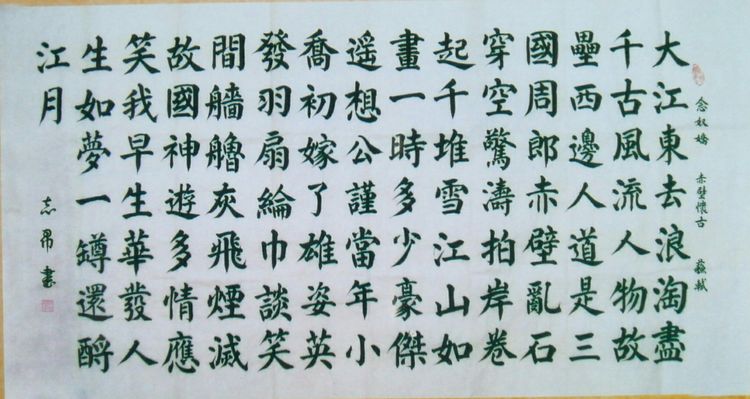 念奴嬌 赤壁懷古 蘇軾
大江東去浪淘盡
千古風流人物故
壘西邊人道是三
國周郎赤壁亂石
穿空驚濤拍岸卷
起千堆雪江山如
畫一時多少豪傑
遥想公謹當年小
喬初嫁了雄姿英
發羽扇綸巾談笑
間艢艪灰飛煙滅
故國神遊多情應
笑我早生華發人
生如夢一罇還酹
江月
志昂書